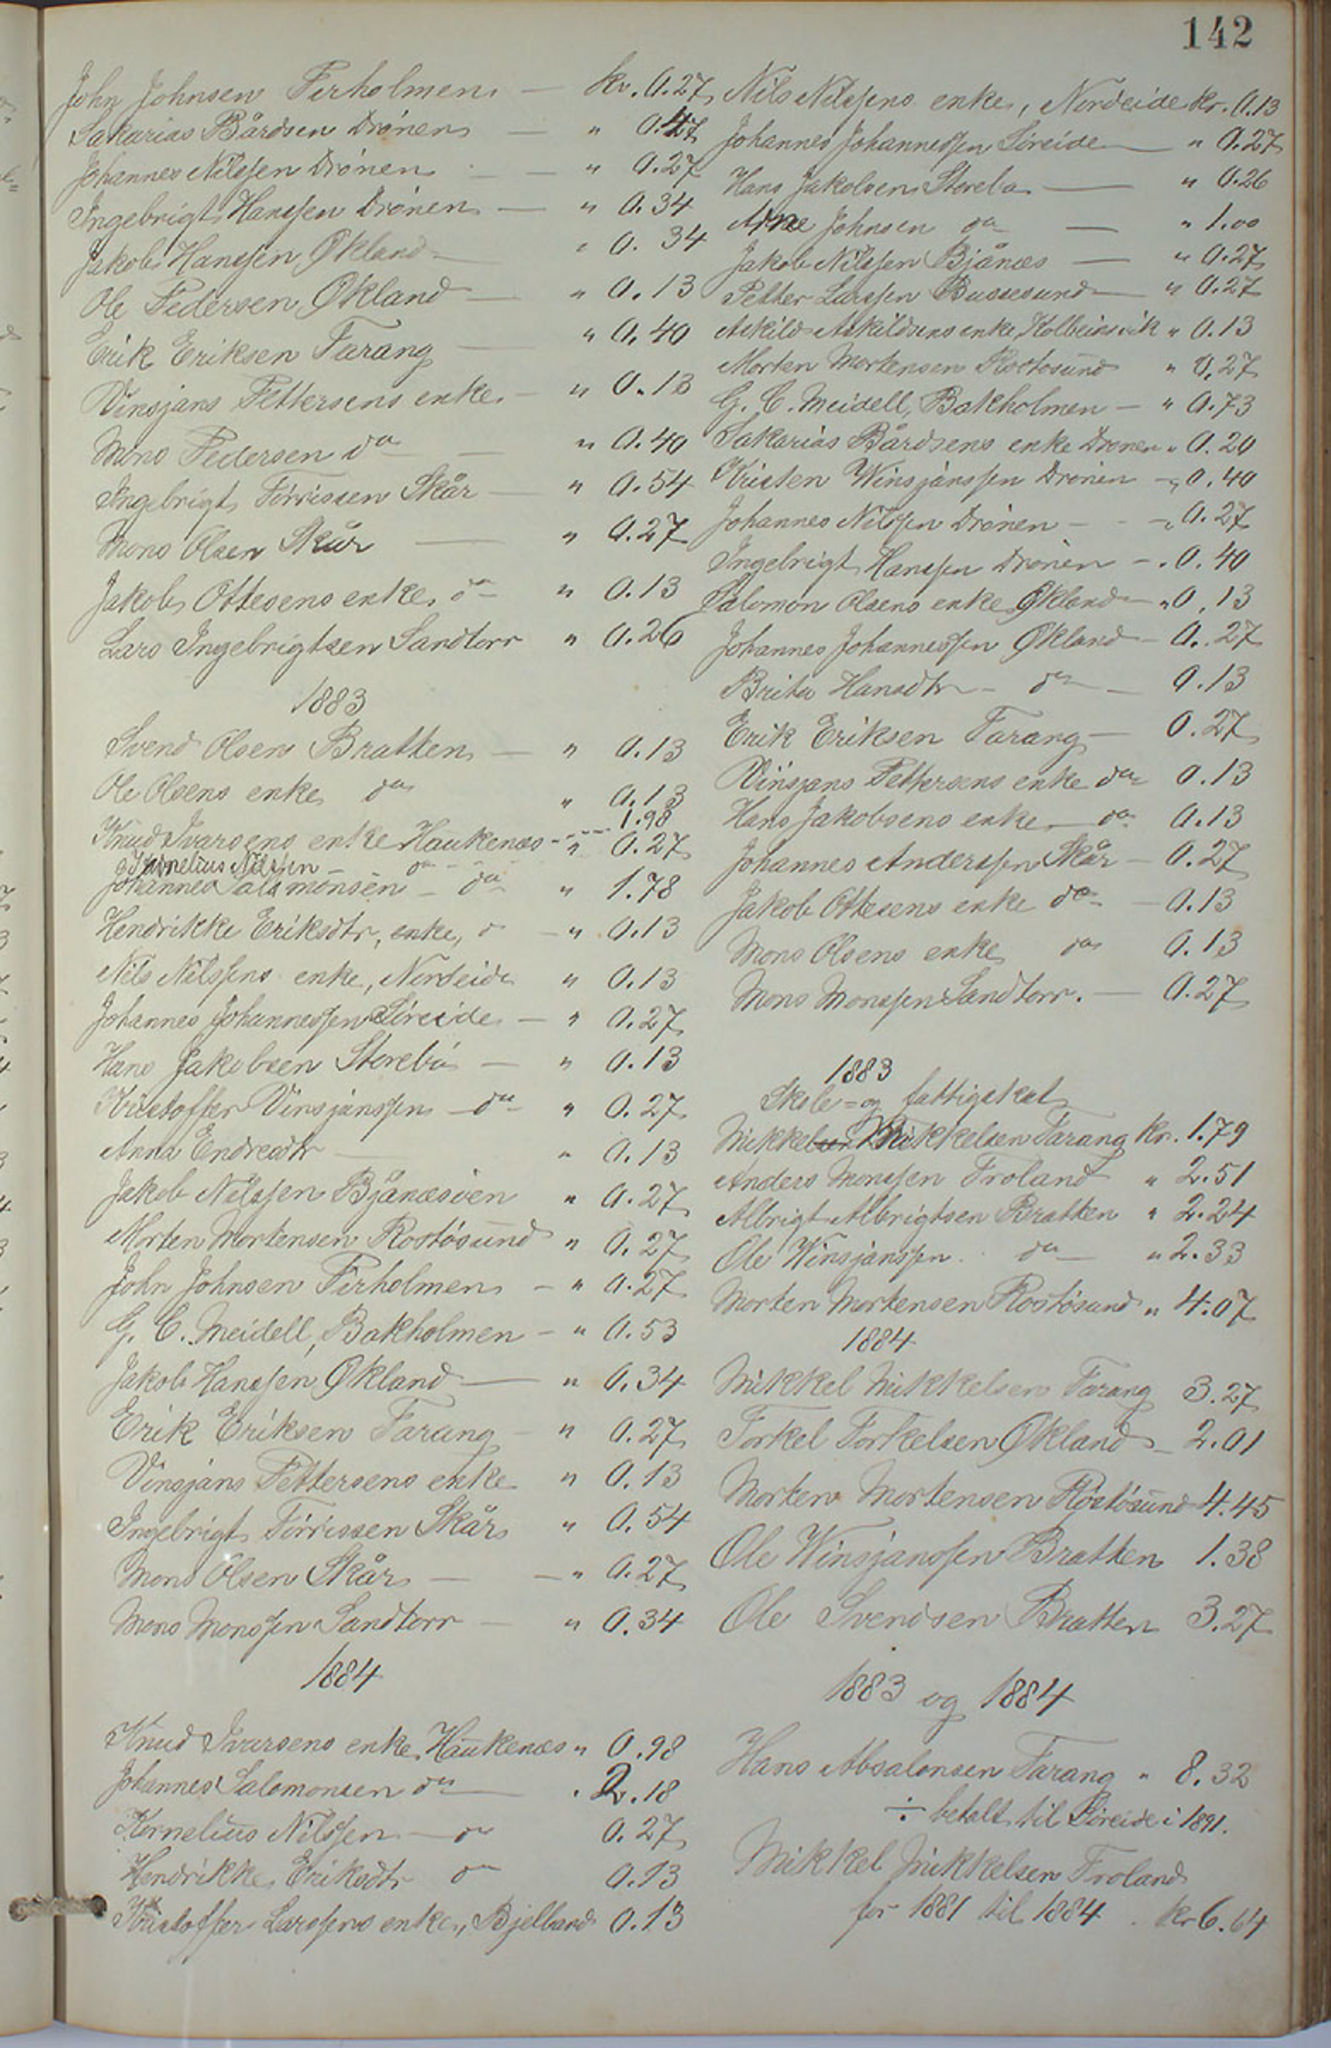 142
John Johnsen Firholmen — kr. 0.27
Sakarias Bårdsen Drönen — " 0.47
Johannes Nilssen Drönen — " 0.27
Ingebrigt Hanssen Drönen — " 0.34
Jakob Hanssen Økland — " 0.34
Ole Pedersen Økland — " 0.13
Erik Eriksen Tarang — " 0.40
Vinsjans Pettersens enke — " 0.13
Mons Pedersen do — " 0.40
Ingebrigt Törrissen Skår — " 0.54
Mons Olsen Skår — " 0.27
Jakob Ottesens enke, do — " 0.13
Lars Ingebrigtsen Sandtorr " 0.26
1883
Svend Olsen Bratten — " 0.13
Ole Olsens enke do " 0.13
1.98
Knud Ivarsens enke Haukenæs - " 0.27
Kornelius Nilssen — do
Johannes Salomonsen — do " 1.78
Hendrikke Eriksdtr, enke, do — " 0.13
Nils Nilssens enke, Nordeide " 0.13
Johannes Johannessen Söreide — " 0.27
Hans Jakobsen Storebö — " 0.13
Kristoffer Vinsjanssen — do " 0.27
Anna Endresdtr " 0.13
Jakob Nilssen Bjånæsöen " 0.27
Morten Mortensen Rostösund " 0.27
John Johnsen Firholmen — " 0.27
G. C. Meidell, Bakholmen — " 0.53
Jakob Hanssen Økland — " 0.34
Erik Eriksen Tarang — " 0.27
Vinsjans Pettersens enke " 0.13
Ingebrigt Törrissen Skår " 0.54
Mons Olsen Skår — — " 0.27
Mons Monssen Sandtorr — " 0.34
1884
Knud Ivarsens enke, Haukenæs " 0.98
Johannes Salomonsen do — " 2.18
Kornelius Nilssen — do 0.27
Hendrikke Eriksdtr do 0.13
Kristoffer Larssens enke, Bjelland 0.13
Nils Nilssens enke, Nordeide kr. 0.13
Johannes Johannessen Söreide — " 0.27
Hans Jakobsen Storebö — " 0.26
Arne Johnsen do — " 1.00
Jakob Nilssen Bjånæs — " 0.27
Petter Larssen Bussesund — " 0.27
Askild Askildsens enke, Kolbeinsvik " 0.13
Morten Mortensen Rostösund " 0,27
G. C. Meidell, Bakholmen — " 0.73
Sakarias Bårdsens enke Drönen " 0.20
Kristen Winsjanssen Drönen — " 0.40
Johannes Nilssen Drönen — - — " 0.27
Ingebrigt Hanssen Drönen — " 0.40
Salomon Olsens enke, Økland — " 0.13
Johannes Johannessen Økland — 0.27
Brita Hansdtr — do — 0.13
Erik Eriksen Tarang — 0.27
Vinsjans Pettersens enke do 0.13
Hans Jakobsens enke — do 0.13
Johannes Anderssen Skår — 0.27
Jakob Ottesens enke do — 0.13
Mons Olsens enke do 0.13
Mons Monssen Sandtorr. — 0.27
1883
Skole- og fattigskat
Mikkel Mikkelsen Tarang kr. 1.79
Anders Monssen Troland " 2.51
Albrigt Albrigtsen Bratten " 2.24
Ole Winsjanssen do — " 2.33
Morten Mortensen Rostösund " 4.07
1884
Mikkel Mikkelsen Tarang 3.27
Torkel Torkelsen Økland — 2.01
Morten Mortensen Rostösund 4.45
Ole Winsjanssen Bratten 1.38
Ole Svendsen Bratten 3.27
1883 og 1884
Hans Absalonsen Tarang " 8.32
÷ betalt til Söreide i 1891.
Mikkel Mikkelsen Troland
for 1881 til 1884 . kr 6.64